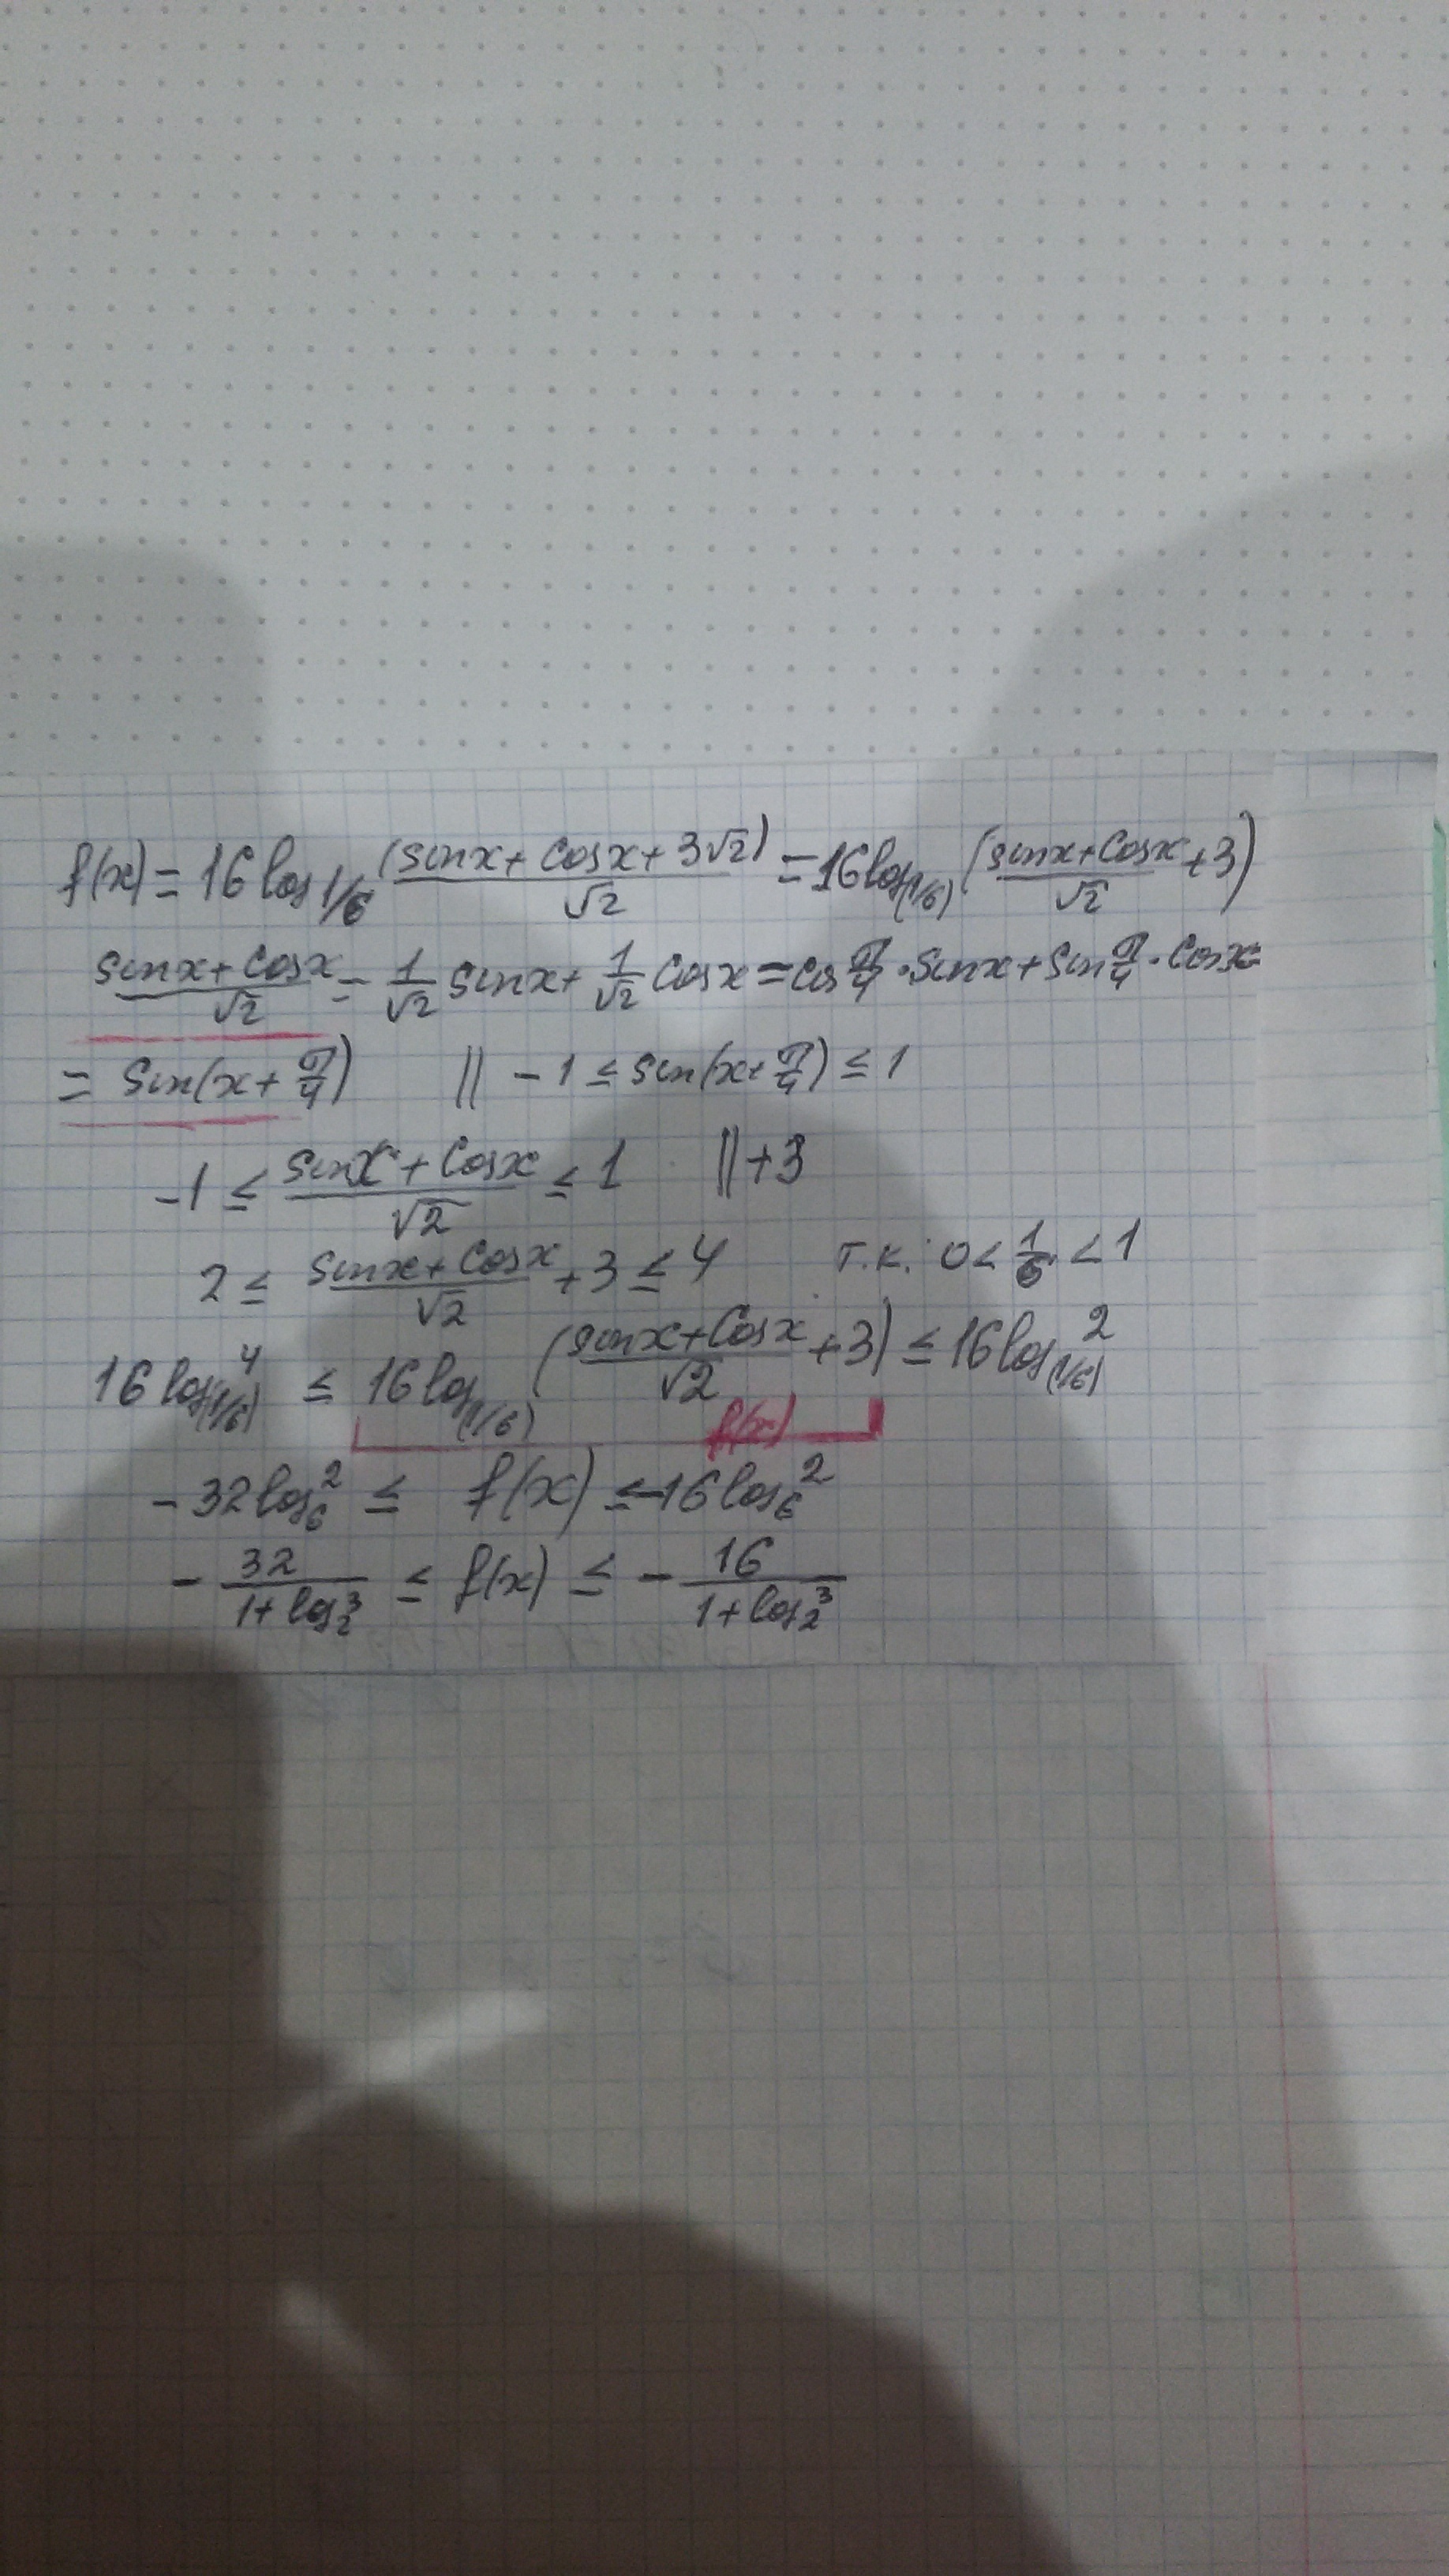 f(x) = 16 log_{1/6} (sinx + cosx + 3√2)/√2 = 16 log_{(1/6)} ((sinx + cosx)/√2 + 3)
(sinx + cosx)/√2 = 1/√2 sinx + 1/√2 cosx = cos π/4 · sinx + sin π/4 · cosx =
= sin(x + π/4) || -1 ≤ sin(x + π/4) ≤ 1
-1 ≤ (sinx + cosx)/√2 ≤ 1 || +3
2 ≤ (sinx + cosx)/√2 + 3 ≤ 4 т.к. 0 < 1/6 < 1
16 log_{(1/6)} 4 ≤ 16 log_{(1/6)} ((sinx + cosx)/√2 + 3) ≤ 16 log_{(1/6)} 2
f(x)
-32 log_6 2 ≤ f(x) ≤ -16 log_6 2
- 32/(1 + log_2 3) ≤ f(x) ≤ - 16/(1 + log_2 3)